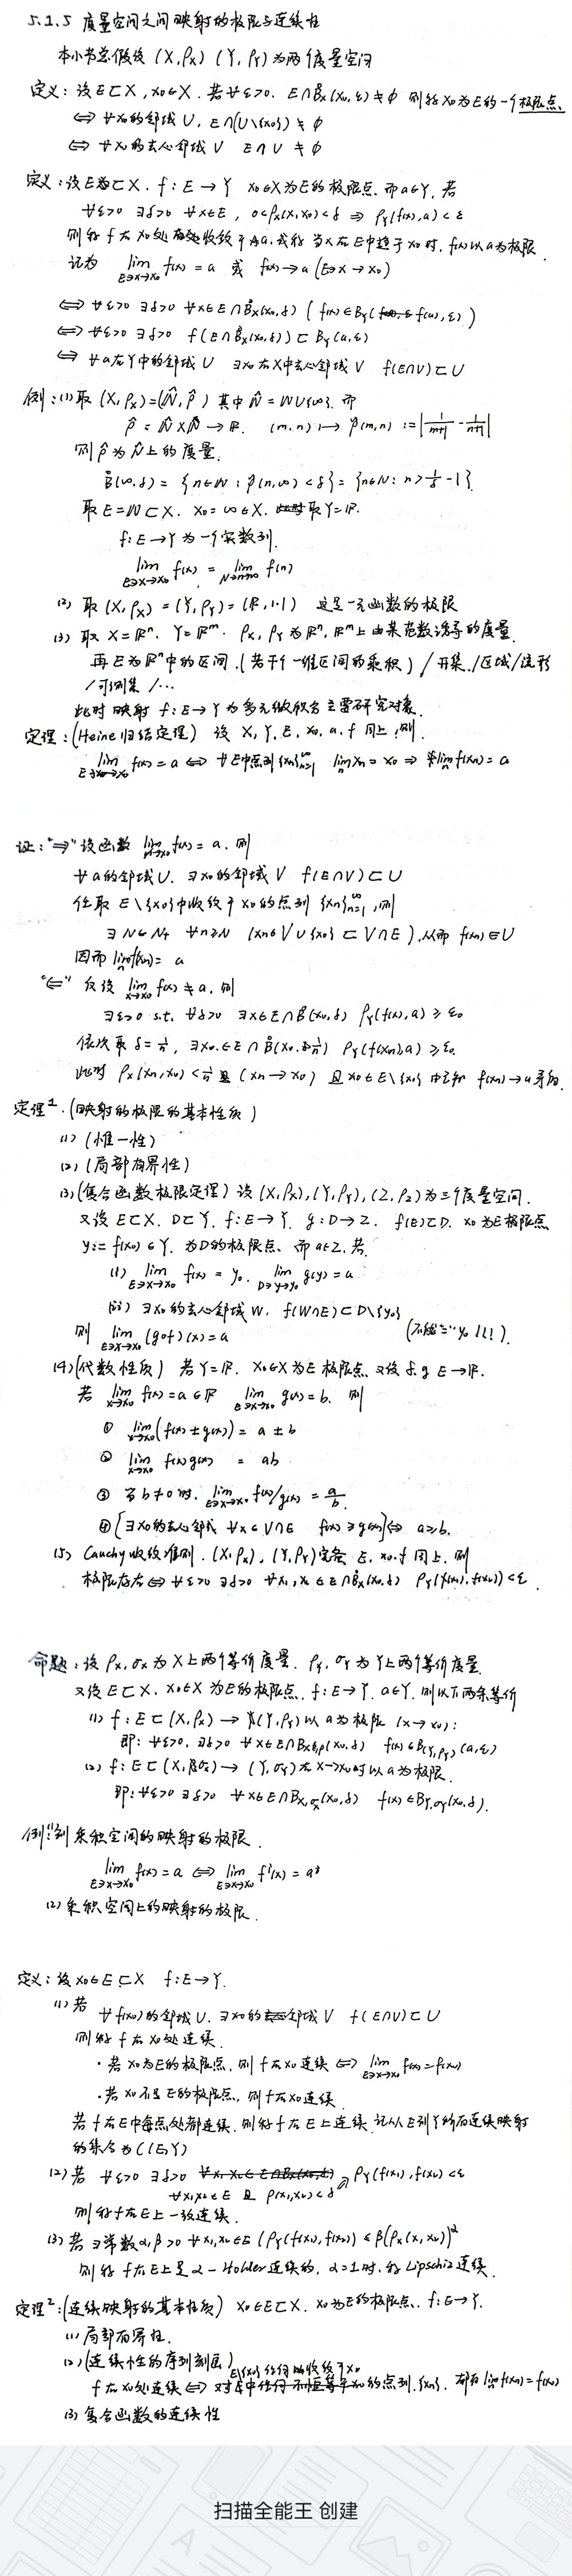 5.1.5 度量空间之间映射的极限与连续性
本小节总假设 (X,ρx) (Y,ρY) 为两个度量空间
定义:设E⊂X, x₀∈X. 若∀ε>0. E∩B̊x(x₀,ε)≠∅ 则称x₀为E的一个极限点.
⇔ ∀x₀的邻域U, E∩(U\{x₀})≠∅
⇔ ∀x₀的去心邻域V E∩V≠∅
定义:设E⊂X. f:E→Y x₀∈X为E的极限点.而a∈Y, 若
∀ε>0 ∃δ>0 ∀x∈E, 0<ρx(x,x₀)<δ ⇒ ρY(f(x),a)<ε
则称f在x₀处收敛于a.或称当x在E中趋于x₀时,f(x)以a为极限.
记为 lim_{E∋x→x₀} f(x)=a 或 f(x)→a (E∋x→x₀)
⇔ ∀ε>0 ∃δ>0 ∀x∈E∩B̊x(x₀,δ) (f(x)∈BY(f(a),ε))
⇔ ∀ε>0 ∃δ>0 f(E∩B̊x(x₀,δ))⊂BY(a,ε)
⇔ ∀a在Y中的邻域U ∃x₀在X中去心邻域V f(E∩V)⊂U
例:(1)取 (X,ρx)=(N̂,ρ̂) 其中N̂=N∪{∞}.而
ρ̂=N̂×N̂→R. (m,n)↦ρ̂(m,n):=|1/(m+1)-1/(n+1)|
则ρ̂为N̂上的度量.
B̊(∞,δ)={n∈N:ρ̂(n,∞)<δ}={n∈N:n>1/δ-1}.
取E=N⊂X. x₀=∞∈X. 取Y=R.
f:E→Y为一个实数列.
lim_{E∋x→x₀} f(x)=lim_{N∋n→∞} f(n)
(2) 取 (X,ρx)=(Y,ρY)=(R,|·|) 这是一元函数的极限
(3) 取X=Rⁿ. Y=Rᵐ. ρx,ρY为Rⁿ,Rᵐ上由某范数诱导的度量.
再E为Rⁿ中的区间.(若干个一维区间的乘积)/开集/区域/流形
/可测集/…
此时映射 f:E→Y为多元微积分主要研究对象.
定理:(Heine归结定理) 设X,Y,E,x₀,a,f同上,则
lim_{E∋x→x₀} f(x)=a ⇔ ∀E中点列{xn}_{n=1}^∞ lim xn=x₀ ⇒ lim f(xn)=a
证:"⇒"设函数 lim_{x→x₀} f(x)=a.则
∀a的邻域U. ∃x₀的邻域V f(E∩V)⊂U
任取E\{x₀}中收敛于x₀的点列{xn}_{n=1}^∞,则
∃N∈N₊ ∀n≥N (xn∈V∪{x₀}⊂V∩E),从而f(xn)∈U
因而lim f(xn)=a
"⇐"反设 lim_{x→x₀} f(x)≠a.则
∃ε>0 s.t. ∀δ>0 ∃x∈E∩B̊(x₀,δ) ρY(f(x),a)≥ε₀
依次取δ=1/n, ∃x₀∈E∩B̊(x₀,1/n) ρY(f(xn),a)≥ε₀.
此时 ρx(xn,x₀)<1/n且(xn→x₀) 且x₀∈E\{x₀} 由已知 f(xn)→a矛盾.
定理1.(映射的极限的基本性质)
(1) (惟一性)
(2) (局部有界性)
(3) (复合函数极限定理) 设(X,ρx),(Y,ρY),(Z,ρz)为三个度量空间.
又设E⊂X. D⊂Y. f:E→Y. g:D→Z. f(E)⊂D. x₀为E极限点
y:=f(x₀)∈Y.为D的极限点.而a∈Z.若
(i) lim_{E∋x→x₀} f(x)=y₀. lim_{D∋y→y₀} g(y)=a
(ii) ∃x₀的去心邻域W. f(W∩E)⊂D\{y₀}
则 lim_{E∋x→x₀} (g∘f)(x)=a (不能="y₀!!!).
(4) (代数性质) 若Y=R. x₀∈X为E极限点.又设f.g E→R.
若 lim_{x→x₀} f(x)=a∈R lim_{E∋x→x₀} g(x)=b. 则
① lim_{x→x₀}(f(x)±g(x))=a±b
② lim_{x→x₀} f(x)g(x) = ab
③ 当b≠0时. lim_{E∋x→x₀} f(x)/g(x)=a/b.
④ [∃x₀的去心邻域 ∀x∈V∩E f(x)≥g(x)]⇔ a≥b.
(5) Cauchy收敛准则.(X,ρx),(Y,ρY)完备 E,x₀.f同上,则
极限存在⇔ ∀ε>0 ∃δ>0 ∀x₁,x₂∈E∩B̊x(x₀,δ) ρY(f(x₁),f(x₂))<ε.
命题:设ρx,σx为X上两个等价度量. ρY,σY为Y上两个等价度量.
又设E⊂X. x₀∈X为E的极限点. f:E→Y. a∈Y. 则以下两条等价
(1) f:E⊂(X,ρx)→(Y,ρY)以a为极限 (x→x₀):
即:∀ε>0. ∃δ>0 ∀x∈E∩B̊x,ρ(x₀,δ) f(x)∈B(Y,ρY)(a,ε)
(2) f:E⊂(X,σx)→(Y,σY)在x→x₀时以a为极限.
即:∀ε>0 ∃δ>0 ∀x∈E∩B̊x,σx(x₀,δ) f(x)∈BY,σY(x₀,δ).
例:(1)到乘积空间的映射的极限.
lim_{E∋x→x₀} f(x)=a ⇔ lim_{E∋x→x₀} fʲ(x)=aʲ
(2)乘积空间上的映射的极限.
定义:设x₀∈E⊂X f:E→Y.
(1)若 ∀f(x₀)的邻域U. ∃x₀的邻域V f(E∩V)⊂U
则称f在x₀处连续.
·若x₀为E的极限点.则f在x₀连续⇔ lim_{E∋x→x₀} f(x)=f(x₀)
·若x₀不是E的极限点.则f在x₀连续.
若f在E中每点处都连续.则称f在E上连续.记从E到Y所有连续映射
的集合为C(E,Y)
(2)若 ∀ε>0 ∃δ>0 ∀x₁,x₂∈E且ρ(x₁,x₂)<δ ρY(f(x₁),f(x₂))<ε
则称f在E上一致连续.
(3)若∃常数α,β>0 ∀x₁,x₂∈E (ρY(f(x₁),f(x₂))≤β(ρx(x,x₂))^α
则称f在E上是α-Holder连续的. α=1时.称Lipschiz连续.
定理2:(连续映射的基本性质) x₀∈E⊂X. x₀为E的极限点. f:E→Y.
(1)局部有界性.
(2)(连续性的序列刻画)
f在x₀处连续⇔对E\{x₀}任何收敛于x₀的点列.{xn}. 都有lim f(xn)=f(x₀)
(3)复合函数的连续性
扫描全能王 创建